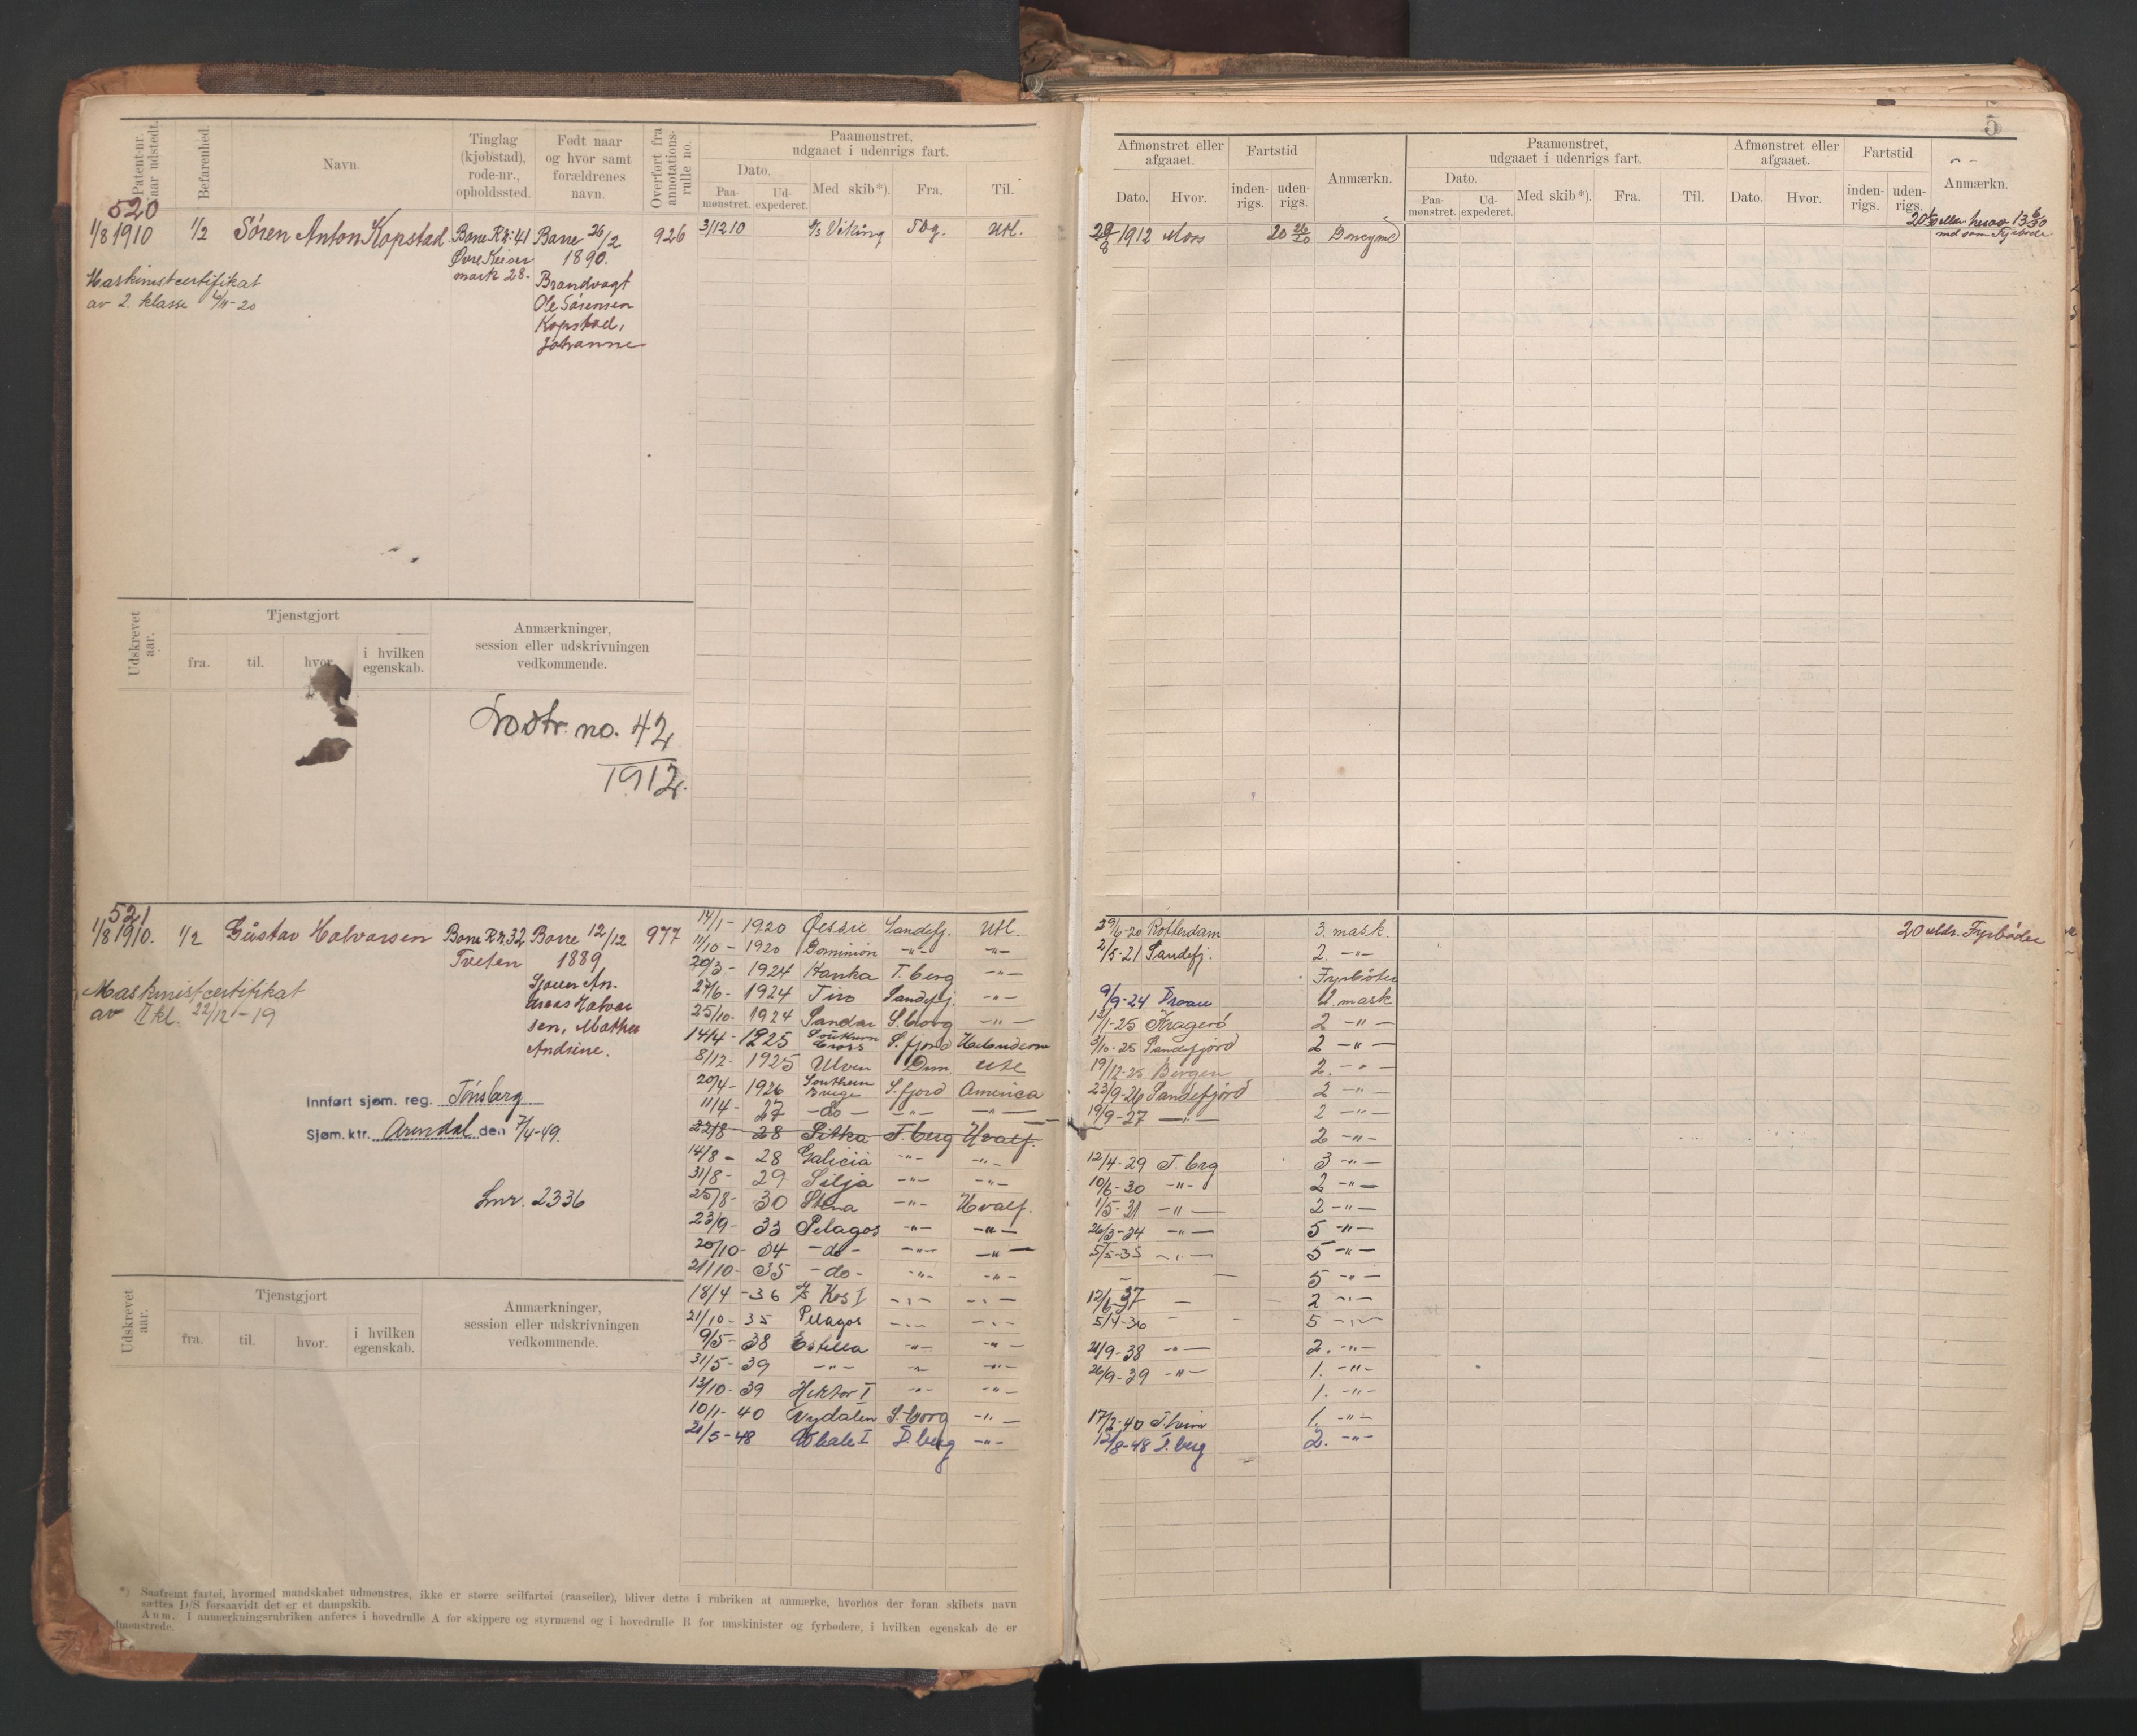 5
Patent-nr. naar udstedt.
Befarenhed.
Navn.
Tinglag (kjøbstad), rode-nr., opholdssted.
Født naar og hvor samt forældrenes navn.
Overført fra annotations-rulle no.
Paamønstret, udgaaet i udenrigs fart.
Dato.
Paa-mønstret.
Ud-expederet.
Med skib*).
Fra.
Til.
Afmønstret eller afgaaet.
Dato.
Hvor.
Fartstid
inden-rigs.
uden-rigs.
Anmærkn.
Paamønstret, udgaaet i udenrigs fart.
Dato.
Paa-mønstret.
Ud-expederet.
Med skib*).
Fra.
Til.
Afmønstret eller afgaaet.
Dato.
Hvor.
Fartstid
inden-rigs.
uden-rigs.
Anmærkn.
520
1/8 1910 1/2 Søren Anton Kopstad Borre R 2: 41 Borre 26/2 926 3/12 10 Viking Tbg. Utl. 1912 Moss 20 26/20
1890.
mark 28.
Maskinistcertifikat
av 2. klasse
Brandvagt
Ole Sørensen
Kopstad,
Johanne
Udskrevet aar.
Tjenstgjort
fra.
til.
hvor.
i hvilken egenskab.
Anmærkninger, session eller udskrivningen vedkommende.
no. 42
1912.
521
1/8 1910. 1/2 Gustav Halvorsen Borre R 2. 32 Borre 12/12 977
Tveten 1889
Maskinistcertifikat
av II kl. 22/12-19
sen, Mathea
Andrine.
Innført sjøm. reg. Tønsberg
Sjøm. ktr. Arendal den 7/4-49.
Lnr. 2336
14/1- 1920 Sandefj. Utl. 29/6-20 Rotterdam 3. mask. 20 mdr. Fyrbøder
11/10- 1920 Dominion -"- -"- 2/5-21 Sandefj. 2. -"-
20/3- 1924 Hanka T.berg -"- Fyrbøter
27/6- 1924 Tiro Sandefj. -"- 9/9-24 2. mask
25/10- 1924 Sandar S.borg -"- 13/1-25 Kragerø 2 -"-
14/4- 1925 Southern Cross S.fjord 3/10-25 Sandefjord 2 -"-
8/12- 1925 Ulven 19/12-25 Bergen 2. -"-
20/4- 1926 Southern S.fjord America 23/9-26 Sandefjord 2 -"-
11/4- 27 -do- -"- -"- 19/9-27 -"- 2 -"-
22/8- 28 Sitka T.berg Hvalf. 2 -"-
14/8- 28 Galicia -"- -"- 12/4-29 T.brg 3 -"-
31/8- 29 Silja -"- -"- 10/6-30 -"- 2 -"-
25/8- 30 -"- Hvalf. 1/5-31 -"- 2 -"-
23/9- 33 Pelagos -"- -"- 26/3-34 -"- 5 -"-
20/10- 34 -do- -"- -"- 5/5-35 -"- 5 -"-
21/10- 35 -do- -"- -"- 5 -"-
18/4 -36 Kos I -"- -"- 12/6-37 - 2 -"-
21/10- 35 Pelagos -"- -"- 5/4-36 - 5 -"-
9/5- 38 Estella -"- -"- 21/9-38 -"- 2. -"-
31/5- 39 -"- -"- -"- 26/9-39 -"- 1. -"-
13/10- 39 Hektor I -"- -"- 1. -"-
10/1- 40 Nydalen S.borg -"- 17/2-40 T.heim 1. -"-
21/5-48 Whale I T.berg -"- 12/8-48 T.berg 2. -"-
Udskrevet aar.
Tjenstgjort
fra.
til.
hvor.
i hvilken egenskab.
Anmærkninger, session eller udskrivningen vedkommende.
*) Saafremt fartøi, hvormed mandskabet udmønstres, ikke er større seilfartøi (raaseiler), bliver dette i rubriken at anmærke, hvorhos der foran skibets navn
sættes D/S forsaavidt det er et dampskib.
Anm. I anmærkningsrubriken anføres i hovedrulle A for skippere og styrmænd og i hovedrulle B for maskinister og fyrbødere, i hvilken egenskab de er